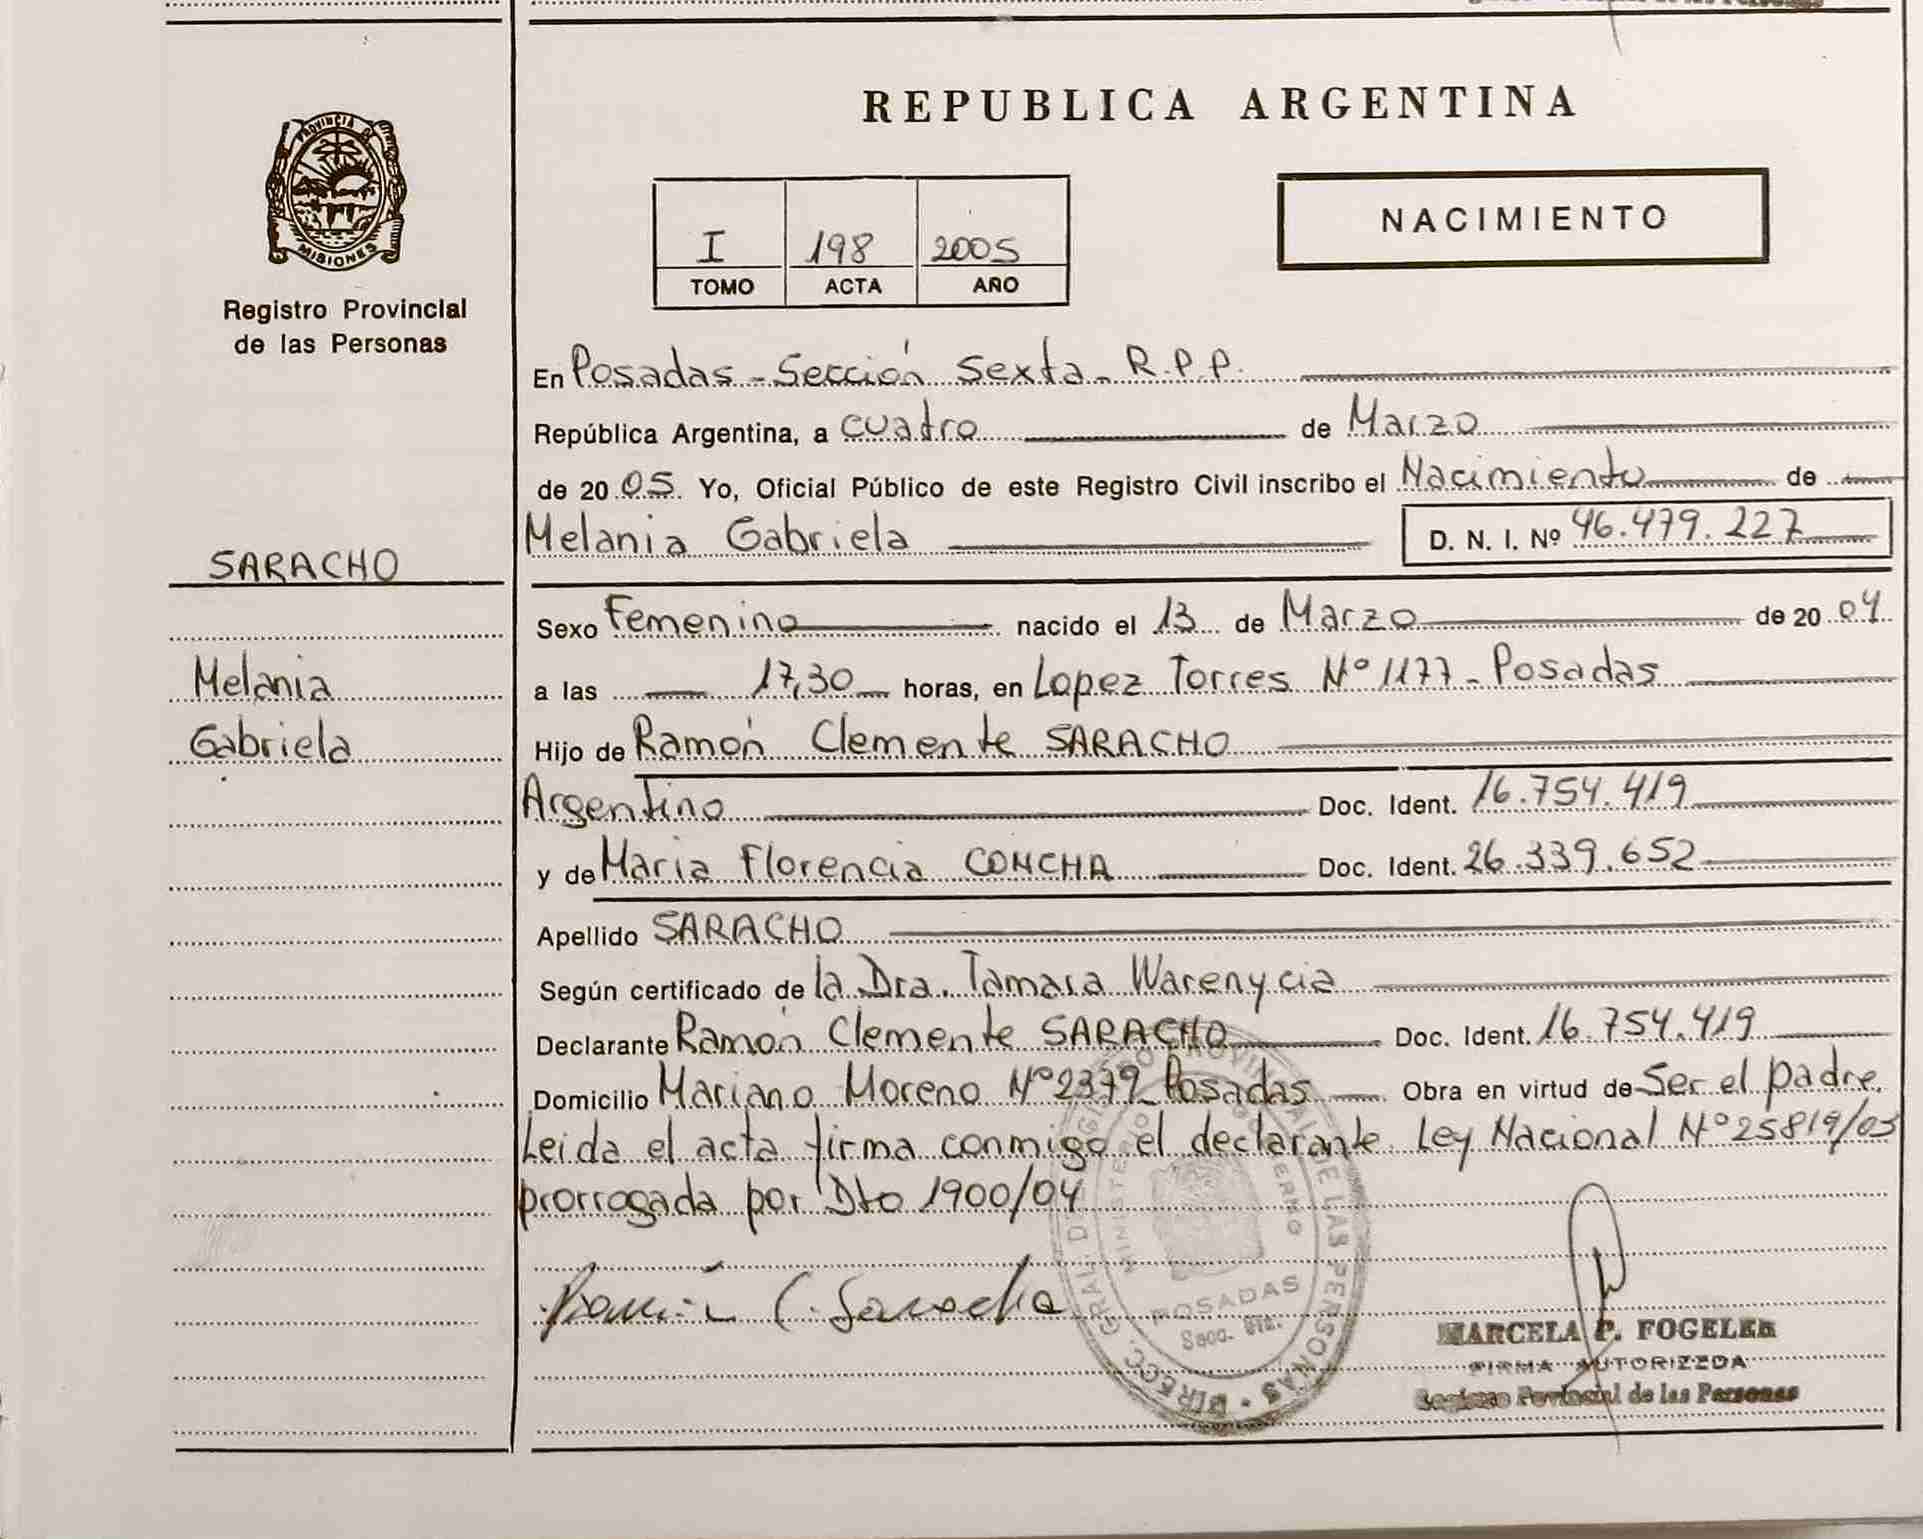 REPUBLICA ARGENTINA
PROVINCIA DE
MISIONES
Registro Provincial
de las Personas
I 198 2005
TOMO ACTA AÑO
NACIMIENTO
En Posadas - Sección Sexta - R.P.P.
República Argentina, a cuatro de Marzo
de 2005. Yo, Oficial Público de este Registro Civil inscribo el Nacimiento de
Melania Gabriela D. N. I. Nº 46.479.227
SARACHO
Melania
Gabriela
Sexo Femenino nacido el 13 de Marzo de 2004
a las 17,30 horas, en Lopez Torres Nº 1177 - Posadas
Hijo de Ramón Clemente SARACHO
Argentino Doc. Ident. 16.754.419
y de Maria Florencia CONCHA Doc. Ident. 26.339.652
Apellido SARACHO
Según certificado de la Dra. Tamara Warenycia
Declarante Ramón Clemente SARACHO Doc. Ident. 16.754.419
Domicilio Mariano Moreno Nº 2379 - Posadas Obra en virtud de Ser el padre.
Leida el acta firma conmigo el declarante. Ley Nacional Nº 25819/03
prorrogada por Dto 1900/04
Ramón C. Saracho
DIRECC. GRAL. DE REGISTRO PROVINCIAL DE LAS PERSONAS
MINISTERIO GOBIERNO
POSADAS
Secc. 6ta.
MARCELA P. FOGELER
FIRMA AUTORIZADA
Registro Provincial de las Personas